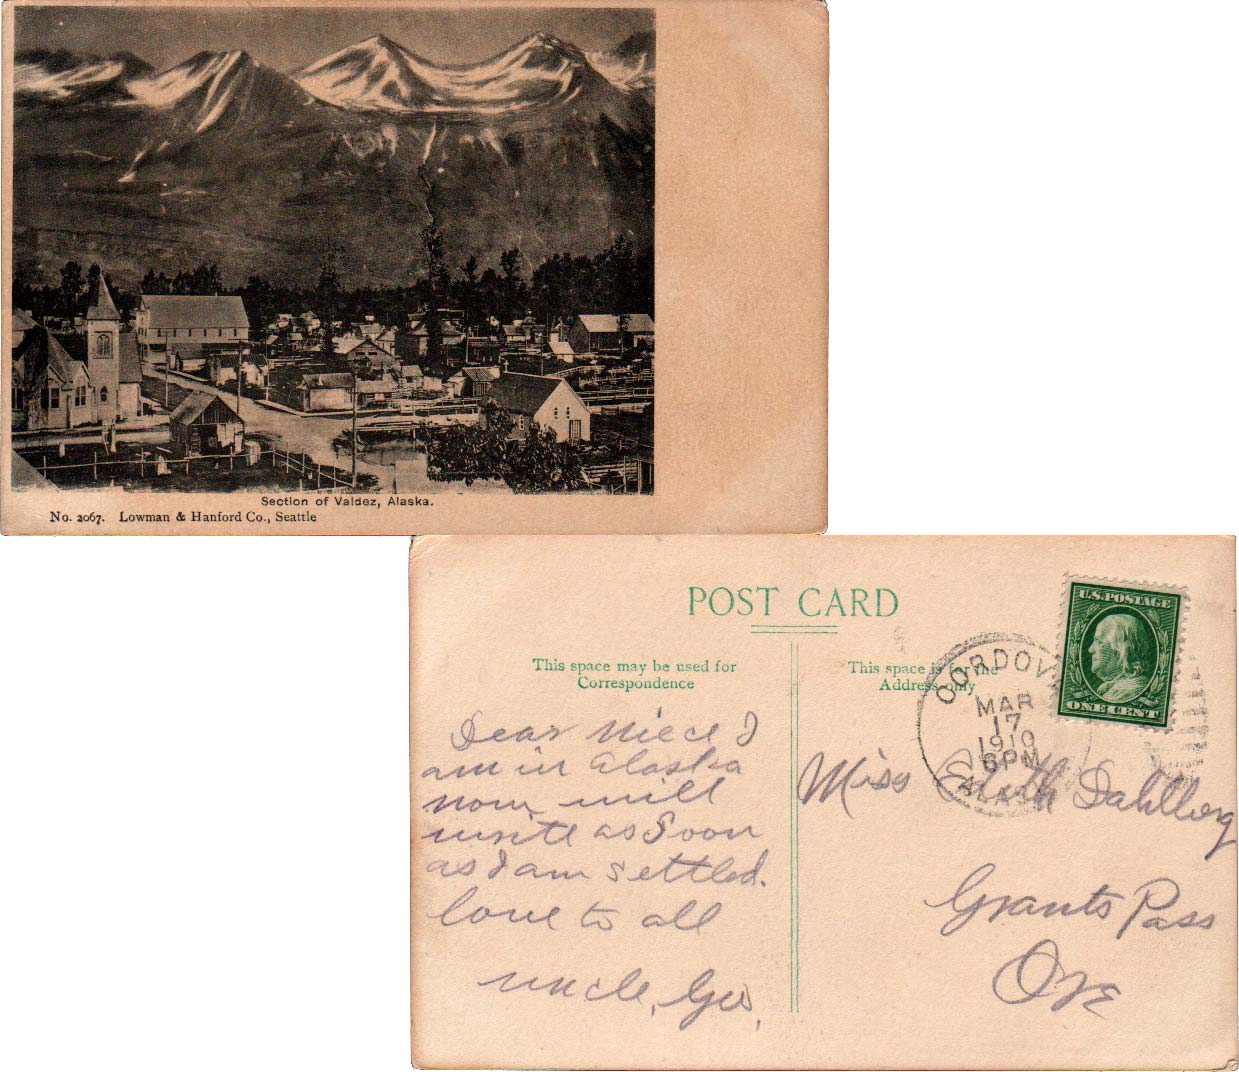 Section of Valdez, Alaska.
No. 2067. Lowman & Hanford Co., Seattle
POST CARD
This space may be used for
Correspondence
This space is for the
Address only
U.S. POSTAGE
ONE CENT
CORDOV
MAR
17
1910
6 PM
ALAS
Dear Niece I
am in Alaska
now will
write as soon
as I am settled.
love to all
uncle, Geo,
Miss Edith Dahlberg
Grants Pass
Ore